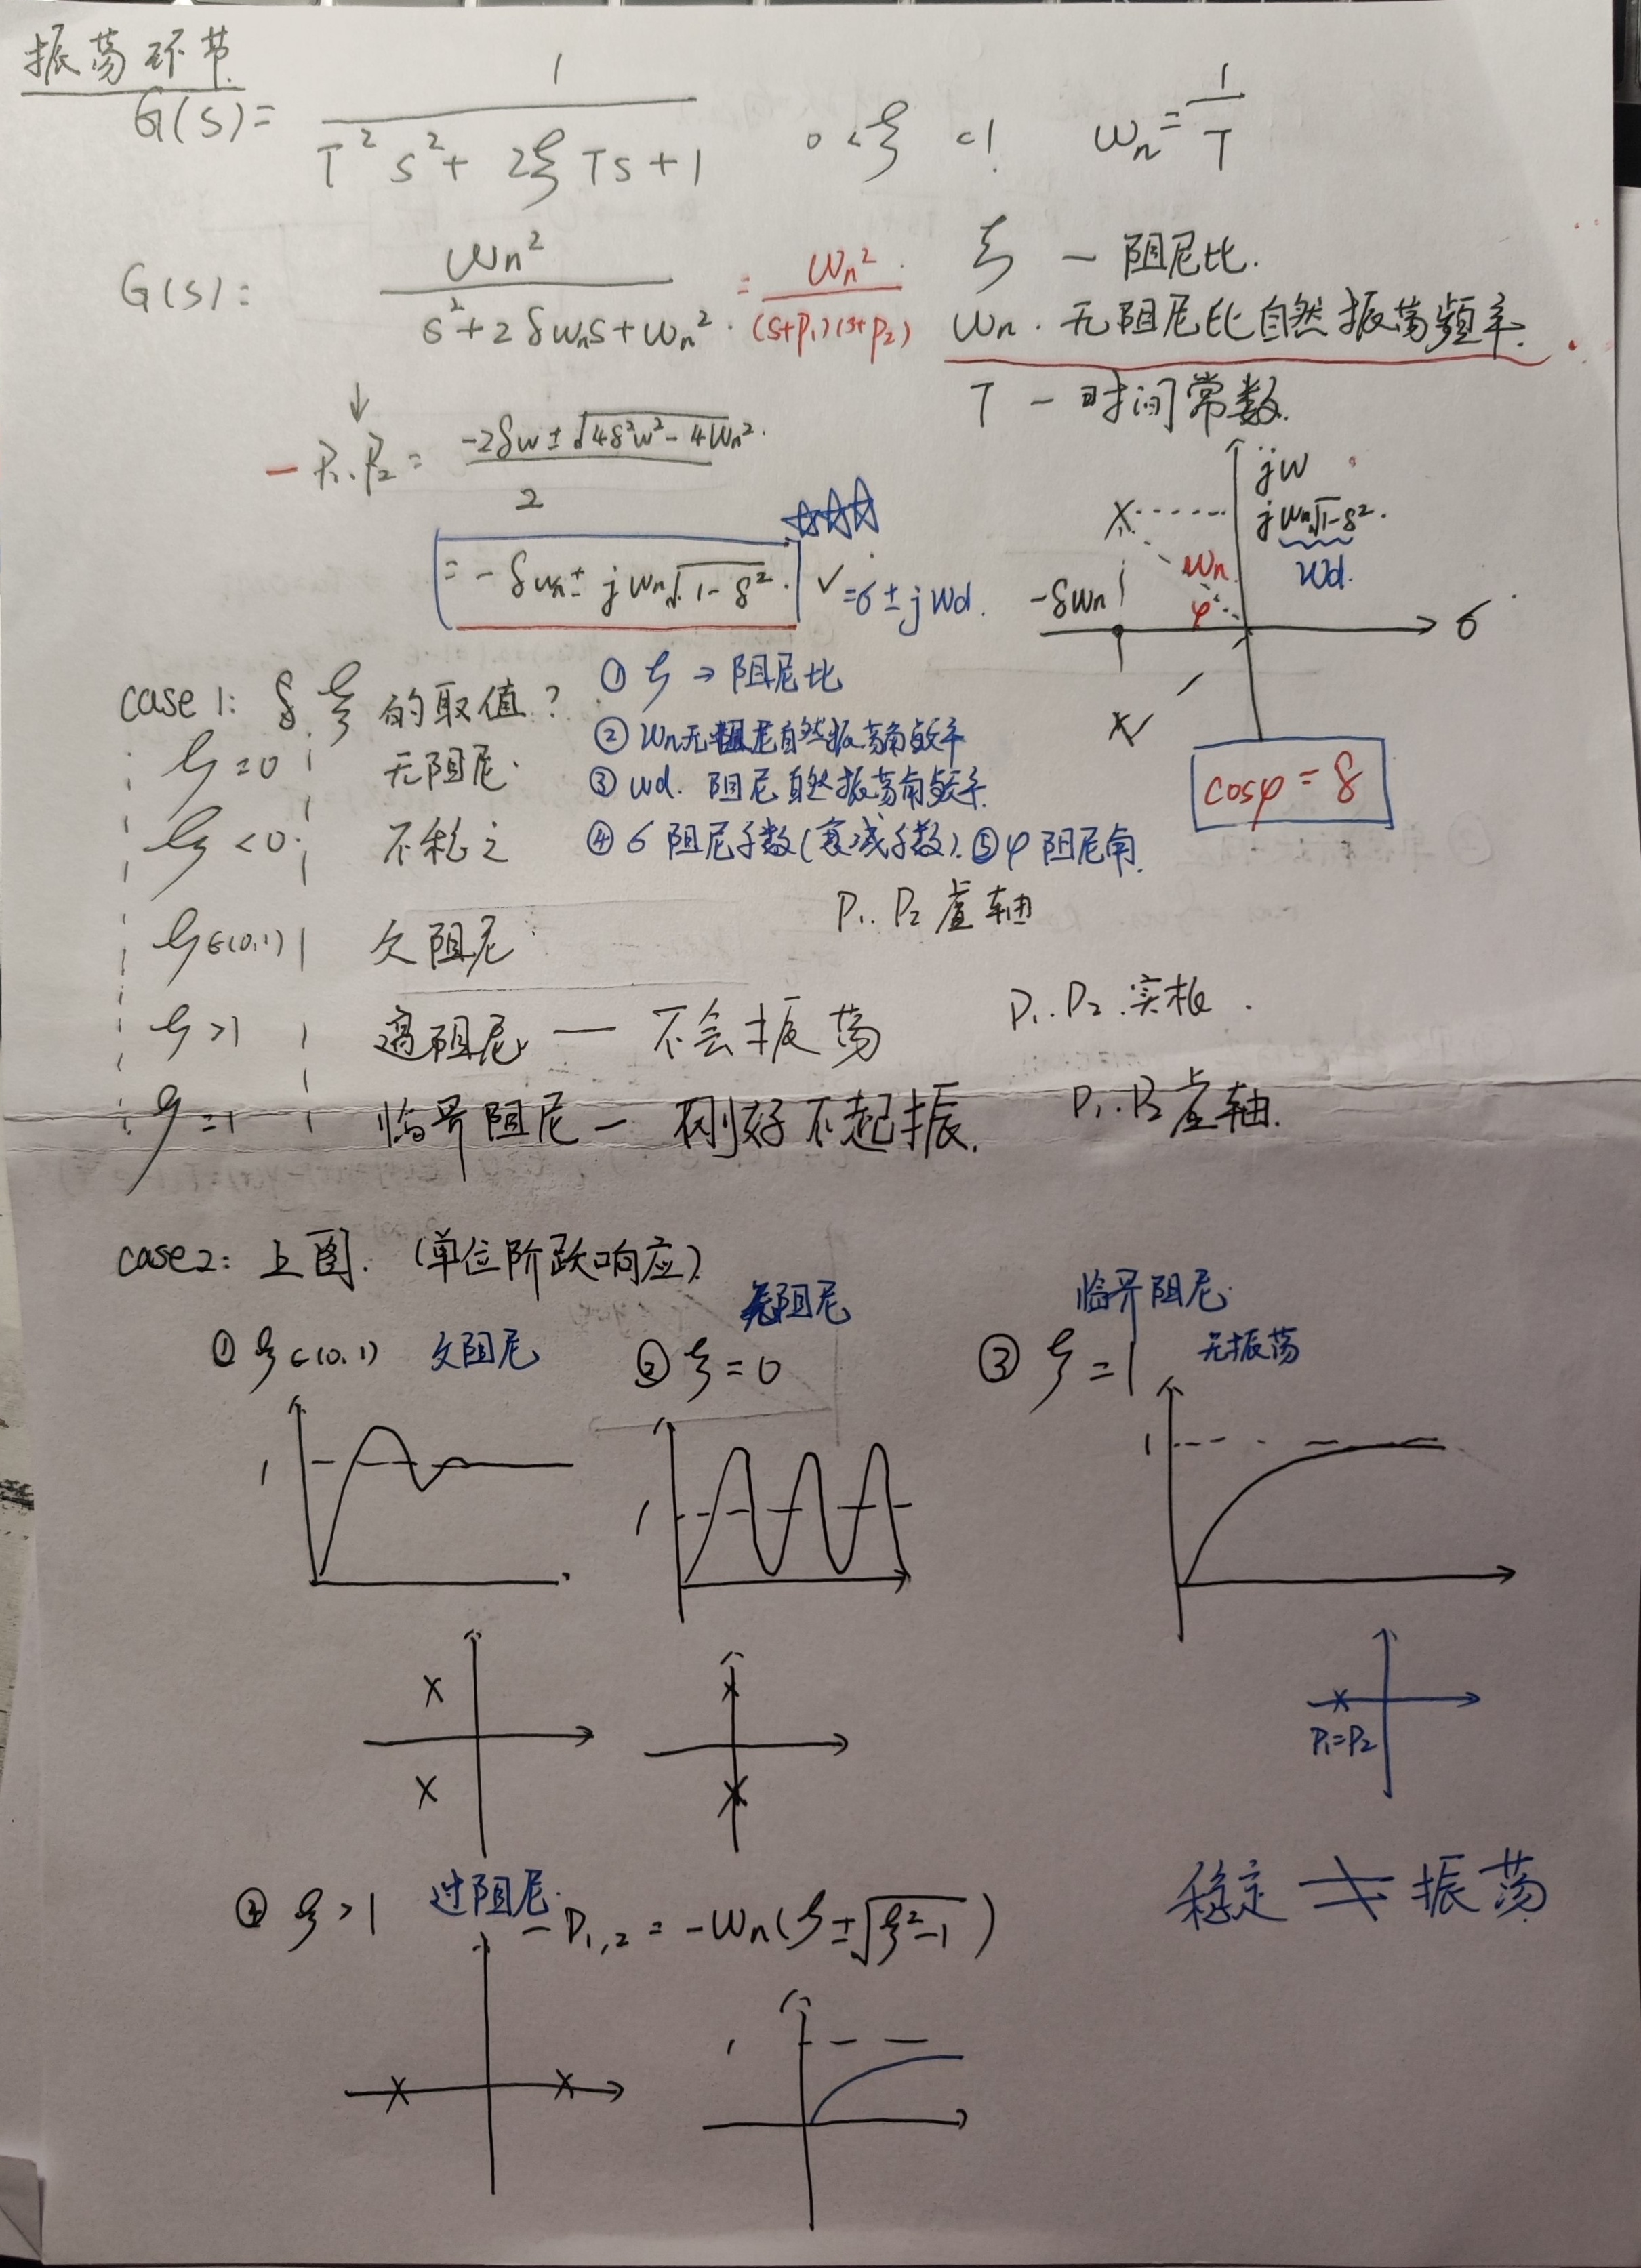 振荡环节
G(s)= 1 / (T²s²+2ξTs+1)   0<ξ<1   ωn=1/T
G(s): ωn² / (s²+2δωns+ωn²) = ωn² / ((s+p₁)(s+p₂))
ξ — 阻尼比.
ωn. 无阻尼比自然振荡频率.
T — 时间常数.
↓
-P₁、P₂ = (-2δω±√(4δ²ω²-4ωn²)) / 2
= -δωn ± jωn√(1-δ²). ✓ =σ±jωd.
jω
jωn√(1-δ²).
ωd.
ωn
-δωn
φ
σ
cosφ=δ
case 1: δ ξ 的取值?
① ξ → 阻尼比
② ωn无阻尼自然振荡角频率
③ ωd. 阻尼自然振荡角频率.
④ σ 阻尼子数(衰减子数). ⑤ φ 阻尼角.
ξ=0 无阻尼.
ξ<0 不稳定
P₁.. P₂ 虚轴
ξ∈(0,1) 欠阻尼
ξ>1 过阻尼 — 不会振荡 P₁.. P₂.实根.
ξ=1 临界阻尼 — 刚好不起振. P₁.. P₂ 虚轴.
case2: 上图. (单位阶跃响应).
① ξ∈(0,1) 欠阻尼
② ξ=0 无阻尼
③ ξ=1 临界阻尼. 无振荡
1
1
1
P₁=P₂
④ ξ>1 过阻尼. -P₁,₂ = -ωn(ξ±√(ξ²-1))
稳定 ≠> 振荡
1